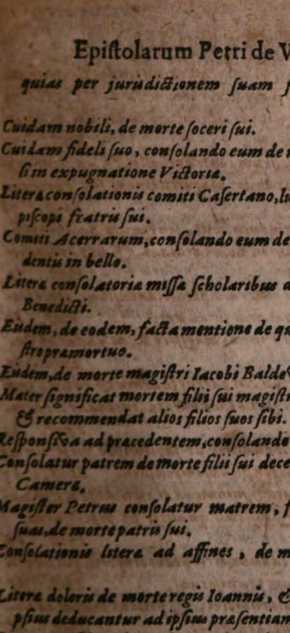 Epiſtolarum Petri de V
quias per jurisdictionem ſuam
Cuidam nobili, de morte ſoceri ſui.
Cuidam fideli ſuo, conſolando eum de
ſi in expugnatione Victoria.
Litera conſolationis comiti Caſertano,
piſcopi fratris ſui.
Comiti Acerrarum, conſolando eum de
dentis in bello.
Litera conſolatoria miſſa ſcholaribus
Benedicti.
Eiidem, de eodem, facta mentione de
ſtro præmortuo.
Eiidem, de morte magiſtri Iacobi Balde
Mater ſignificat mortem filii ſui magiſtr
& recommendat alios filios ſuos ſibi.
Reſponſiva ad præcedentem, conſolando
Conſolatur patrem de morte filii ſui dece
Camera.
Magiſter Petrus conſolatur matrem, f
ſuas, de morte patris ſui.
Conſolationis litera ad affines, de m
Litera doloris de morte regis Ioannis, &
pſius deducantur ad ipſius præſentiam